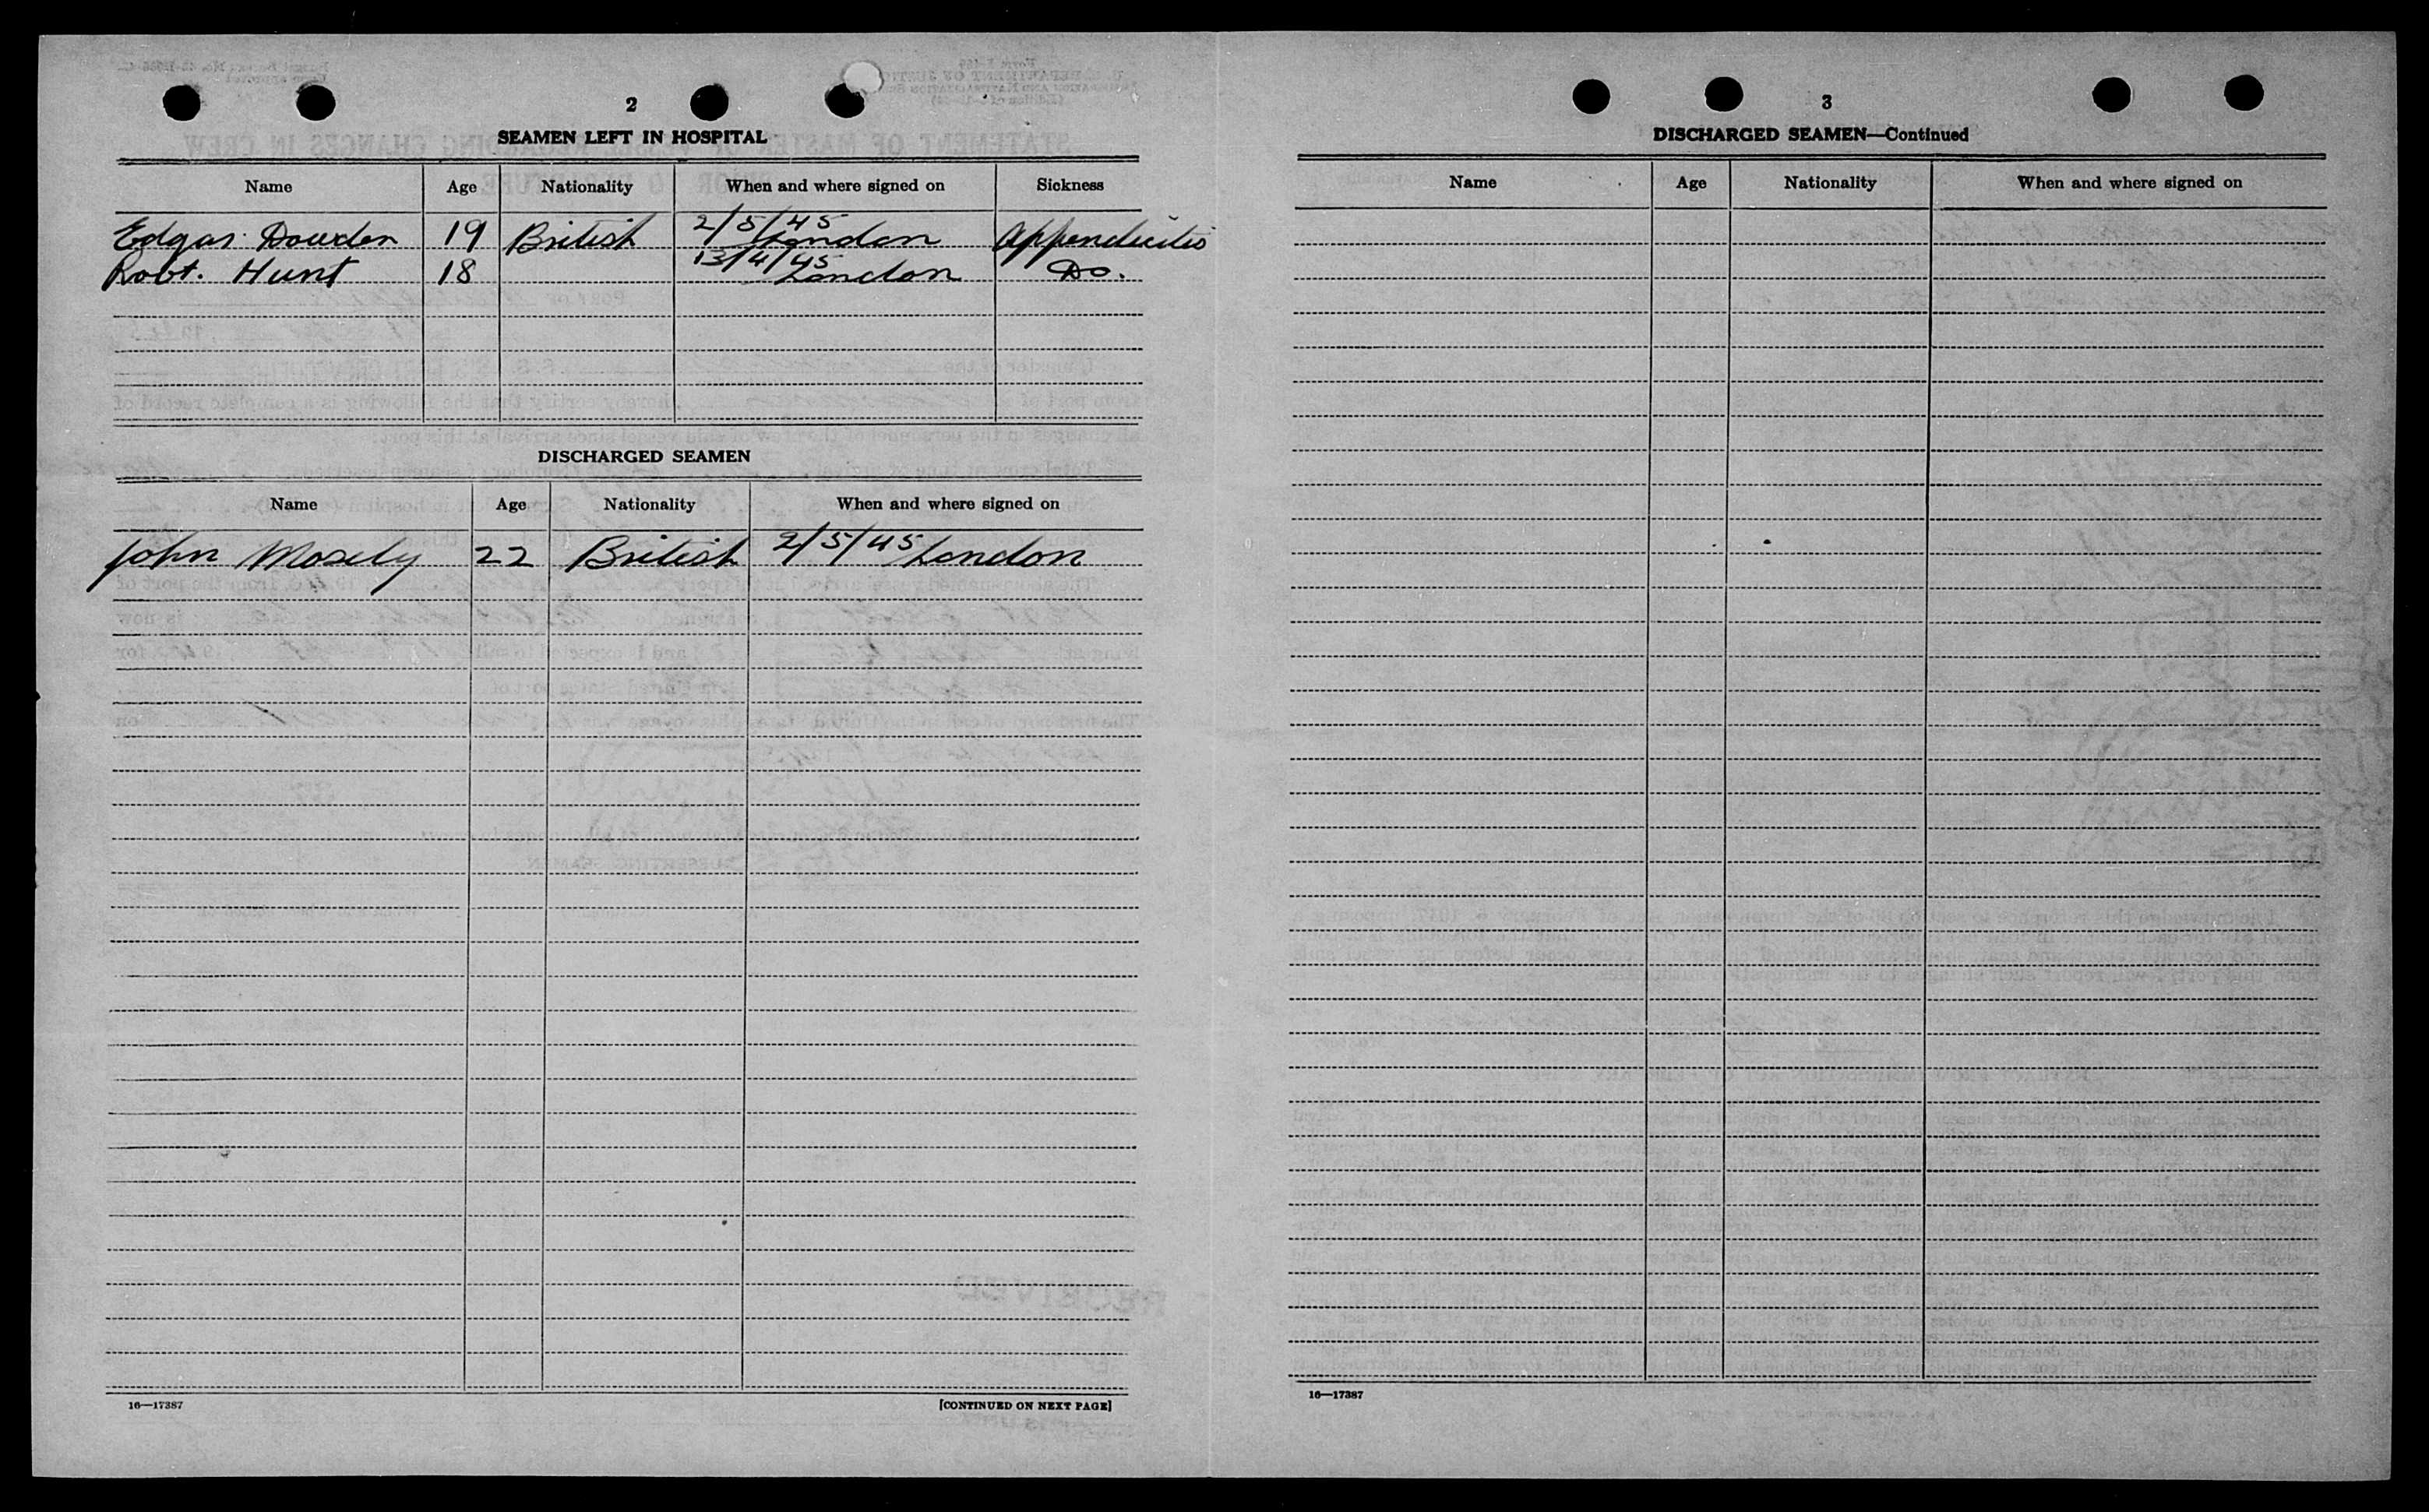 2
SEAMEN LEFT IN HOSPITAL
Name Age Nationality When and where signed on Sickness
Edgar Dowden 19 British 2/5/45 London Appendicitis
Robt. Hunt 18 13/4/45 London Do.
DISCHARGED SEAMEN
Name Age Nationality When and where signed on
John Mosely 22 British 2/5/45 London
16—17387 [CONTINUED ON NEXT PAGE]
3
DISCHARGED SEAMEN—Continued
Name Age Nationality When and where signed on
16—17387